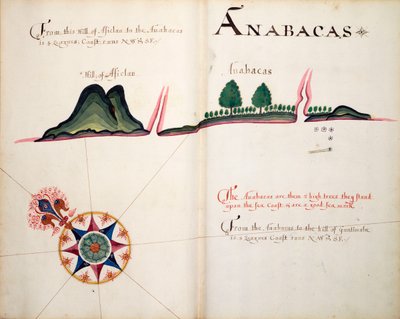 From this Hill of Assiclan to the Anabacas
is 4 Leagues; Coast runs N.W. & S.E.
ANABACAS
Hill of Assiclan
Anabacas
The Anabacas are them 2 high trees they stand
upon the Sea Coast & are a good Sea mark.
From the Anabacas to the Hill of
is 2 Leagues Coast runs N.W. & S.E.